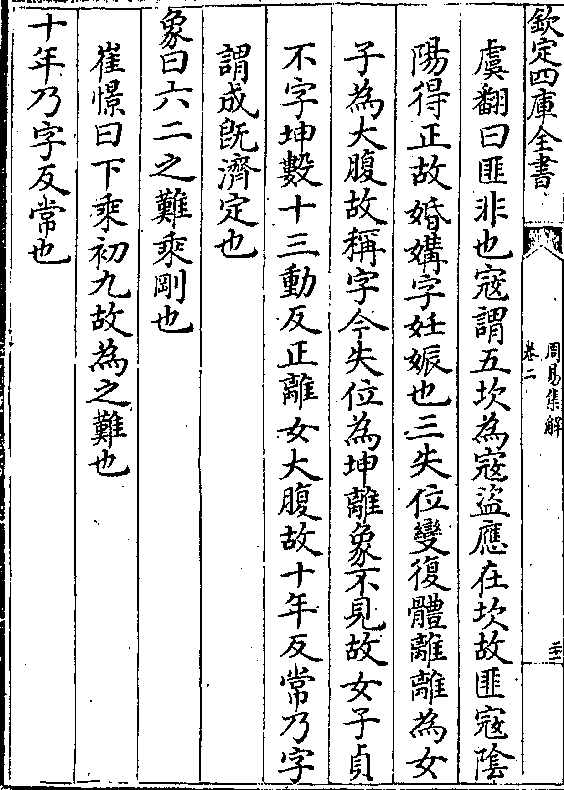 欽定四庫全書
周易集解
卷二
虞翻曰匪非也寇謂五坎為寇盜應在坎故匪寇陰
陽得正故婚媾字妊娠也三失位變復體離離為女
子為大腹故稱字今失位為坤離象不見故女子貞
不字坤數十三動反正離女大腹故十年反常乃字
謂成旣濟定也
象曰六二之難乘剛也
崔憬曰下乘初九故為之難也
十年乃字反常也